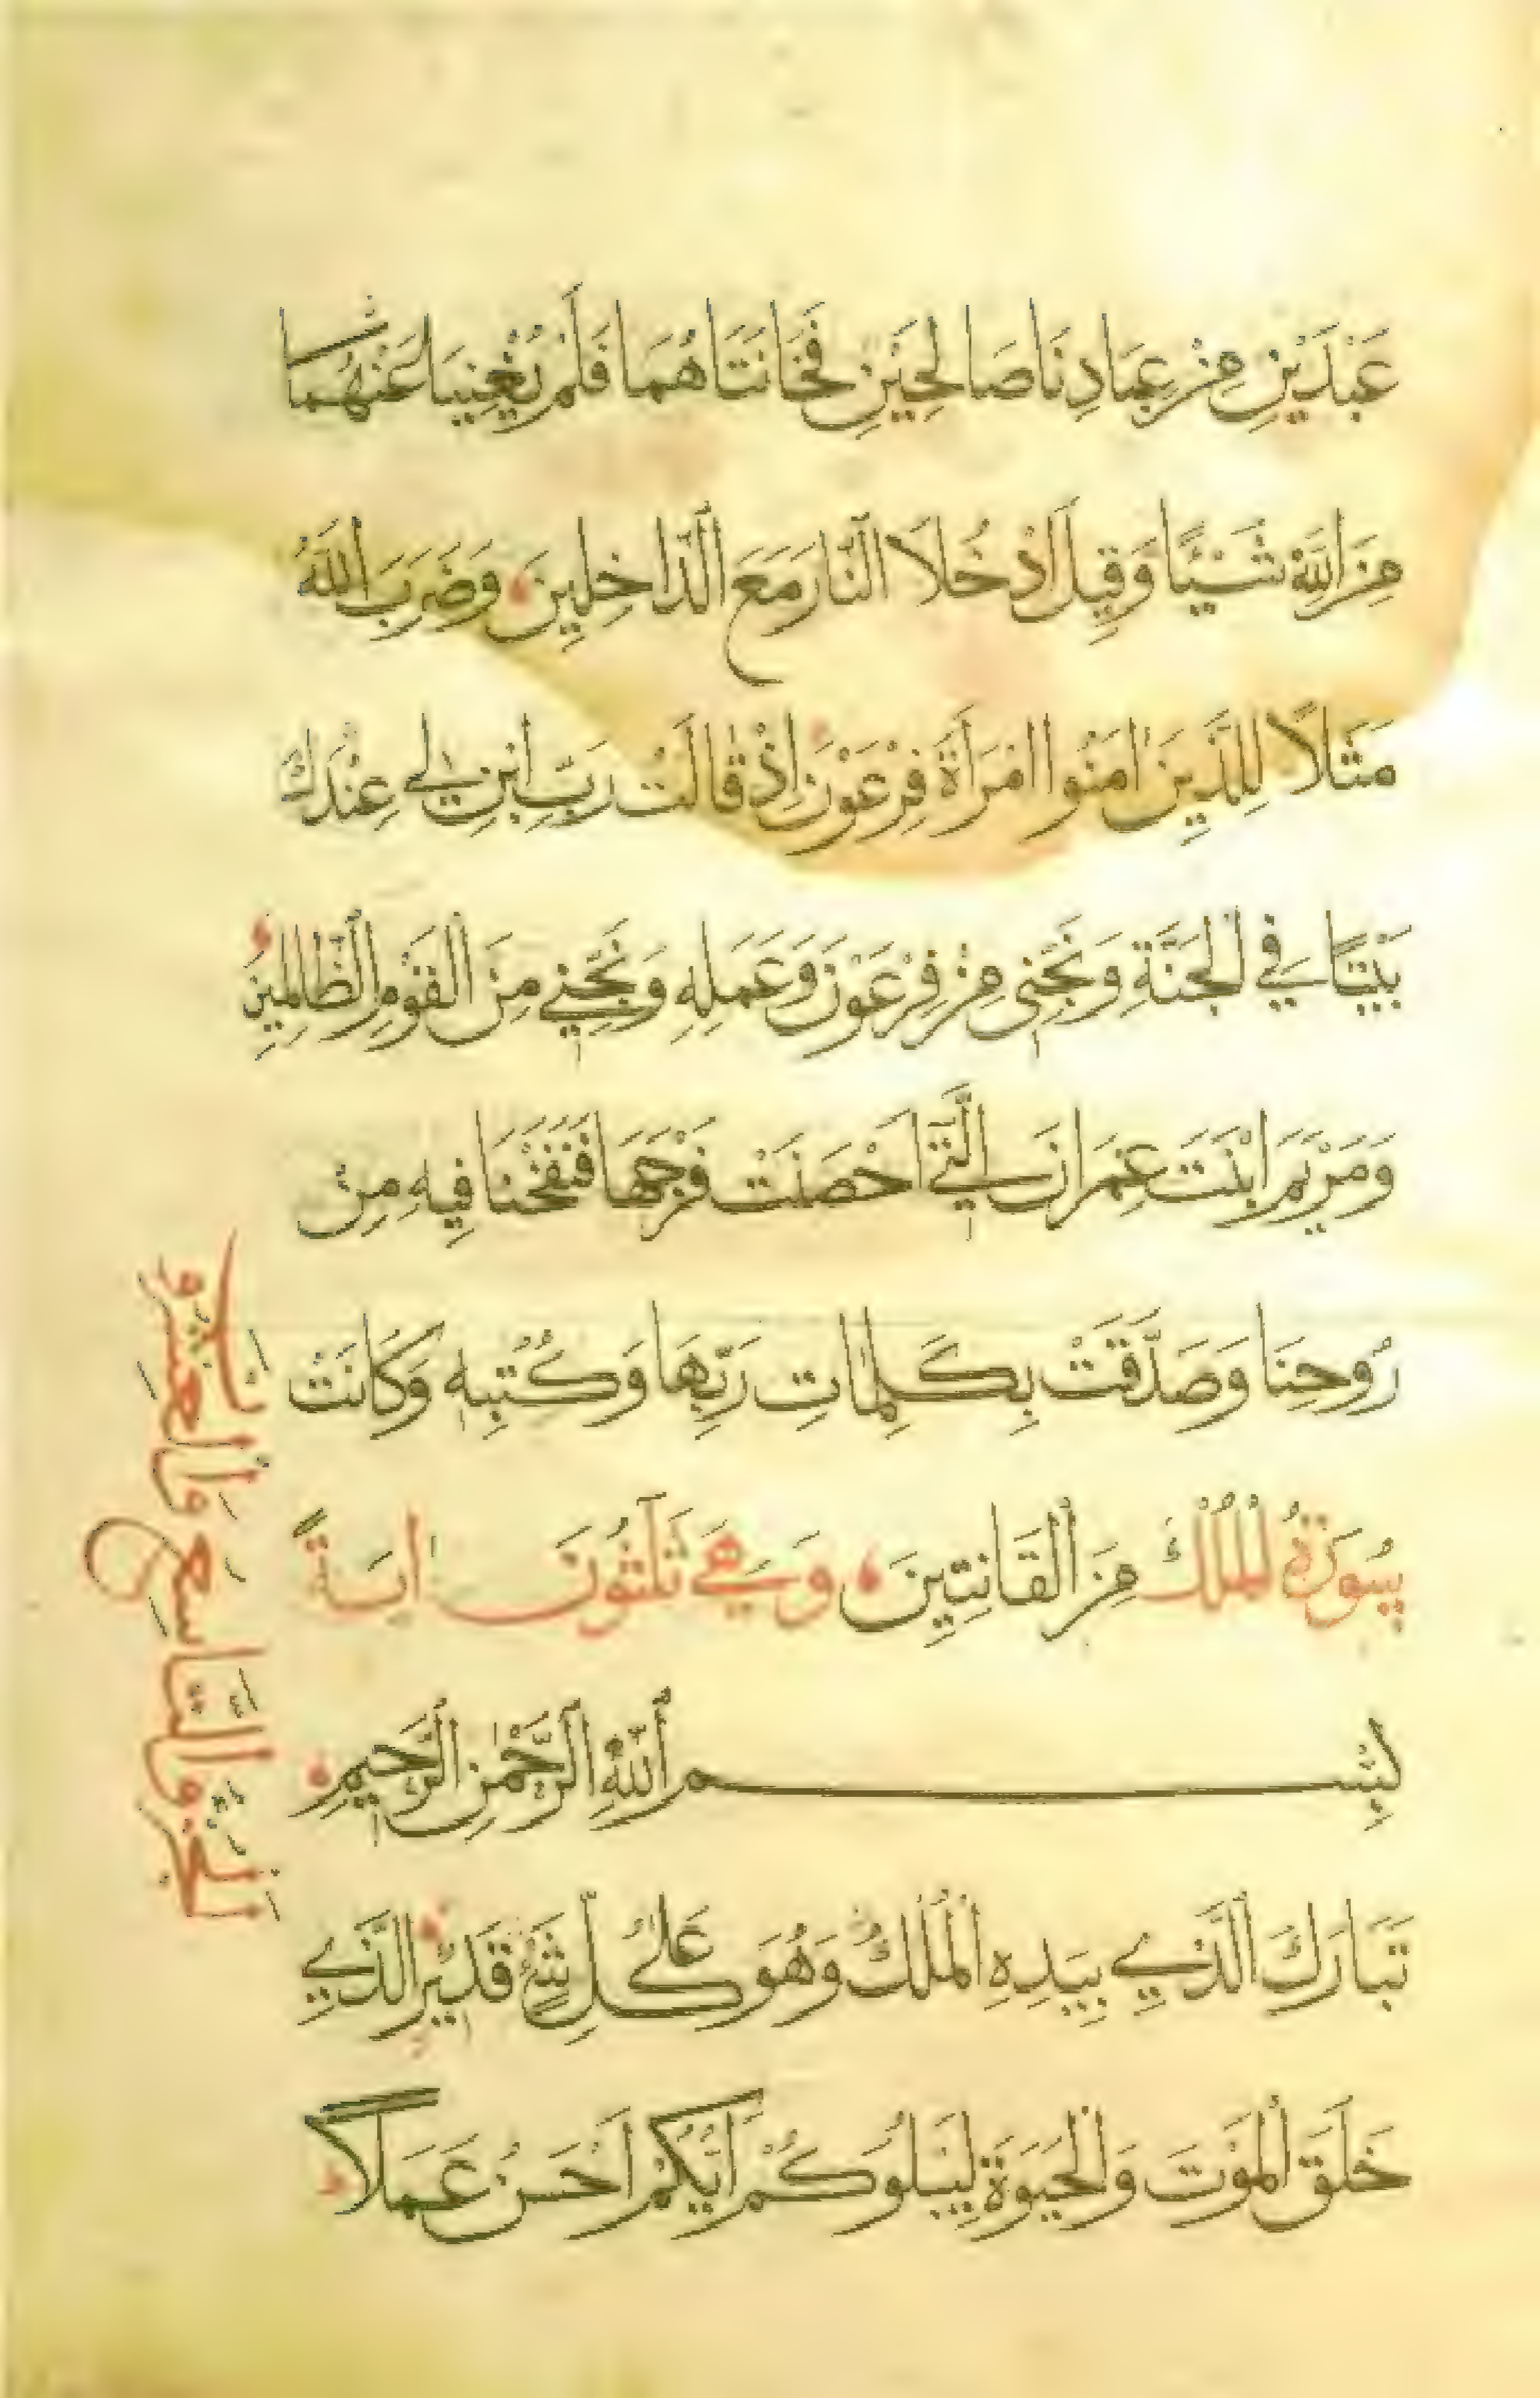 عَبْدَيْنِ مِنْ عِبَادِنَا صَالِحَيْنِ فَخَانَتَاهُمَا فَلَمْ يُغْنِيَا عَنْهُمَا
مِنَ اللَّهِ شَيْئًا وَقِيلَ ادْخُلَا النَّارَ مَعَ الدَّاخِلِينَ وَضَرَبَ اللَّهُ
مَثَلًا لِلَّذِينَ اٰمَنُوا امْرَأَةَ فِرْعَوْنَ اِذْ قَالَتْ رَبِّ ابْنِ لِي عِنْدَكَ
بَيْتًا فِي الْجَنَّةِ وَنَجِّنِي مِنْ فِرْعَوْنَ وَعَمَلِهِ وَنَجِّنِي مِنَ الْقَوْمِ الظَّالِمِينَ
وَمَرْيَمَ ابْنَتَ عِمْرَانَ الَّتِي اَحْصَنَتْ فَرْجَهَا فَنَفَخْنَا فِيهِ مِنْ
رُوحِنَا وَصَدَّقَتْ بِكَلِمَاتِ رَبِّهَا وَكُتُبِهِ وَكَانَتْ
سُورَةُ الْمُلْكِ مِنَ الْقَانِتِينَ وَهِيَ ثَلٰثُونَ اٰيَةً
بِسْمِ اللَّهِ الرَّحْمٰنِ الرَّحِيمِ
تَبَارَكَ الَّذِي بِيَدِهِ الْمُلْكُ وَهُوَ عَلٰى كُلِّ شَيْءٍ قَدِيرٌ الَّذِي
خَلَقَ الْمَوْتَ وَالْحَيٰوةَ لِيَبْلُوَكُمْ اَيُّكُمْ اَحْسَنُ عَمَلًا
الجزو التاسع والعشرو